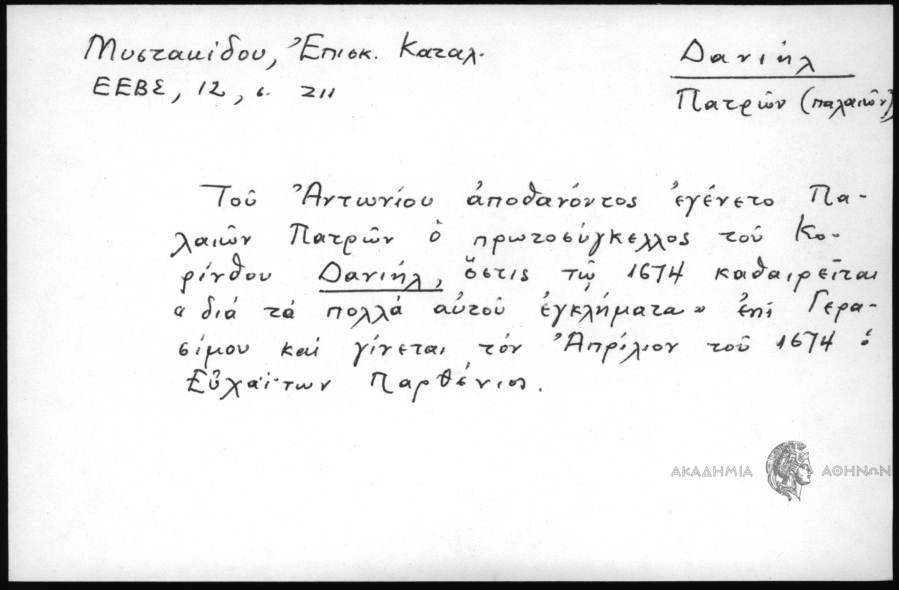 Μυστακίδου, Ἐπισκ. Καταλ.
ΕΕΒΣ, 12, σ. 211
Δανιήλ
Πατρῶν (παλαιῶν)
Τοῦ Ἀντωνίου ἀποθανόντος ἐγένετο Πα-
λαιῶν Πατρῶν ὁ πρωτοσύγκελλος τοῦ Κο-
ρίνθου Δανιήλ, ὅστις τῷ 1674 καθαιρεῖται
«διά τά πολλά αὐτοῦ ἐγκλήματα» ἐπί Γερα-
σίμου καί γίνεται τόν Ἀπρίλιον τοῦ 1674 ὁ
Εὐχαΐτων Παρθένιος.
ΑΚΑΔΗΜΙΑ ΑΘΗΝΩΝ